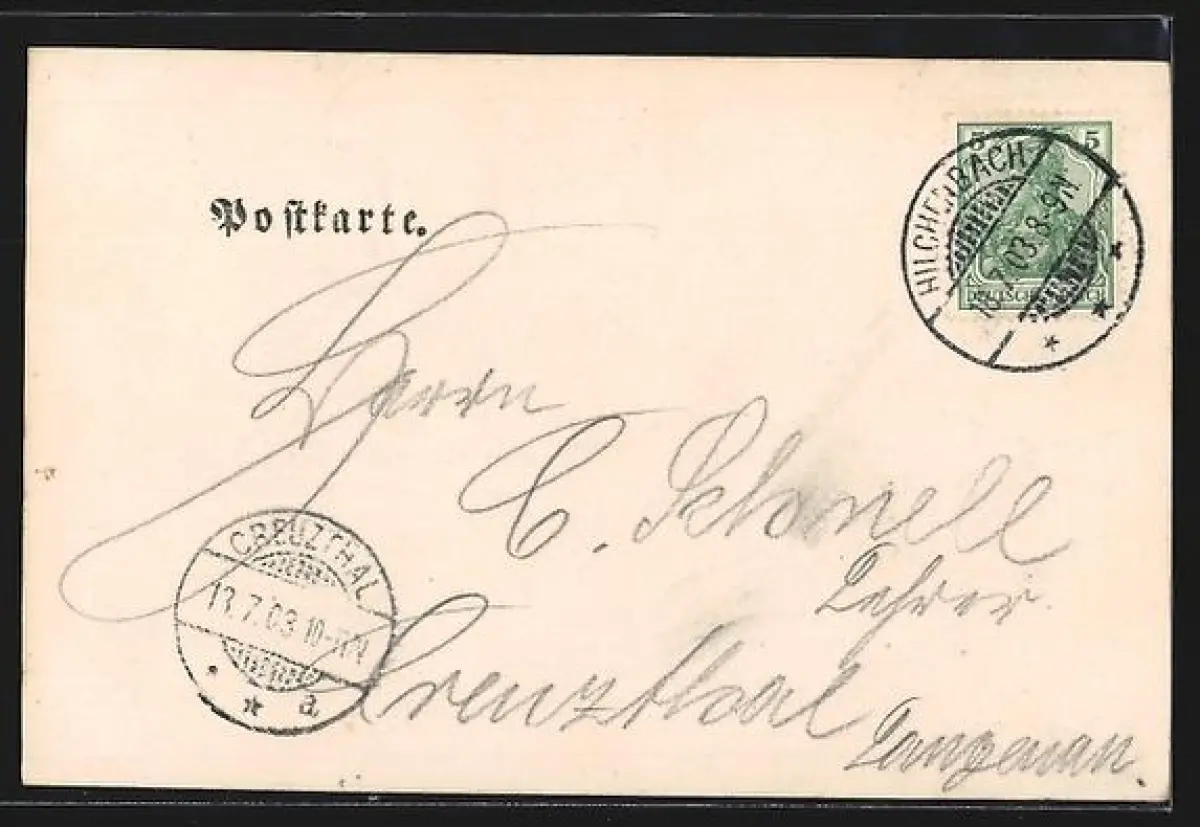 Postkarte.
5 5
DEUTSCHES REICH
HILCHENBACH
13.7.03.8-9N
Herrn
C. Schnell
Lehrer
Creuzthal
Langenau.
CREUZTHAL
13.7.03 10-11N
a